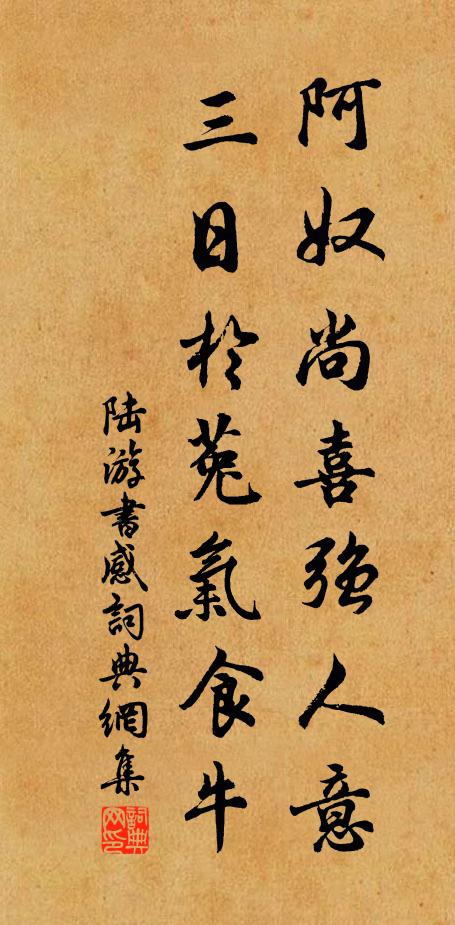 阿奴尚喜强人意
三日於菟氣食牛
陆游書感詞典網集
詞典网印